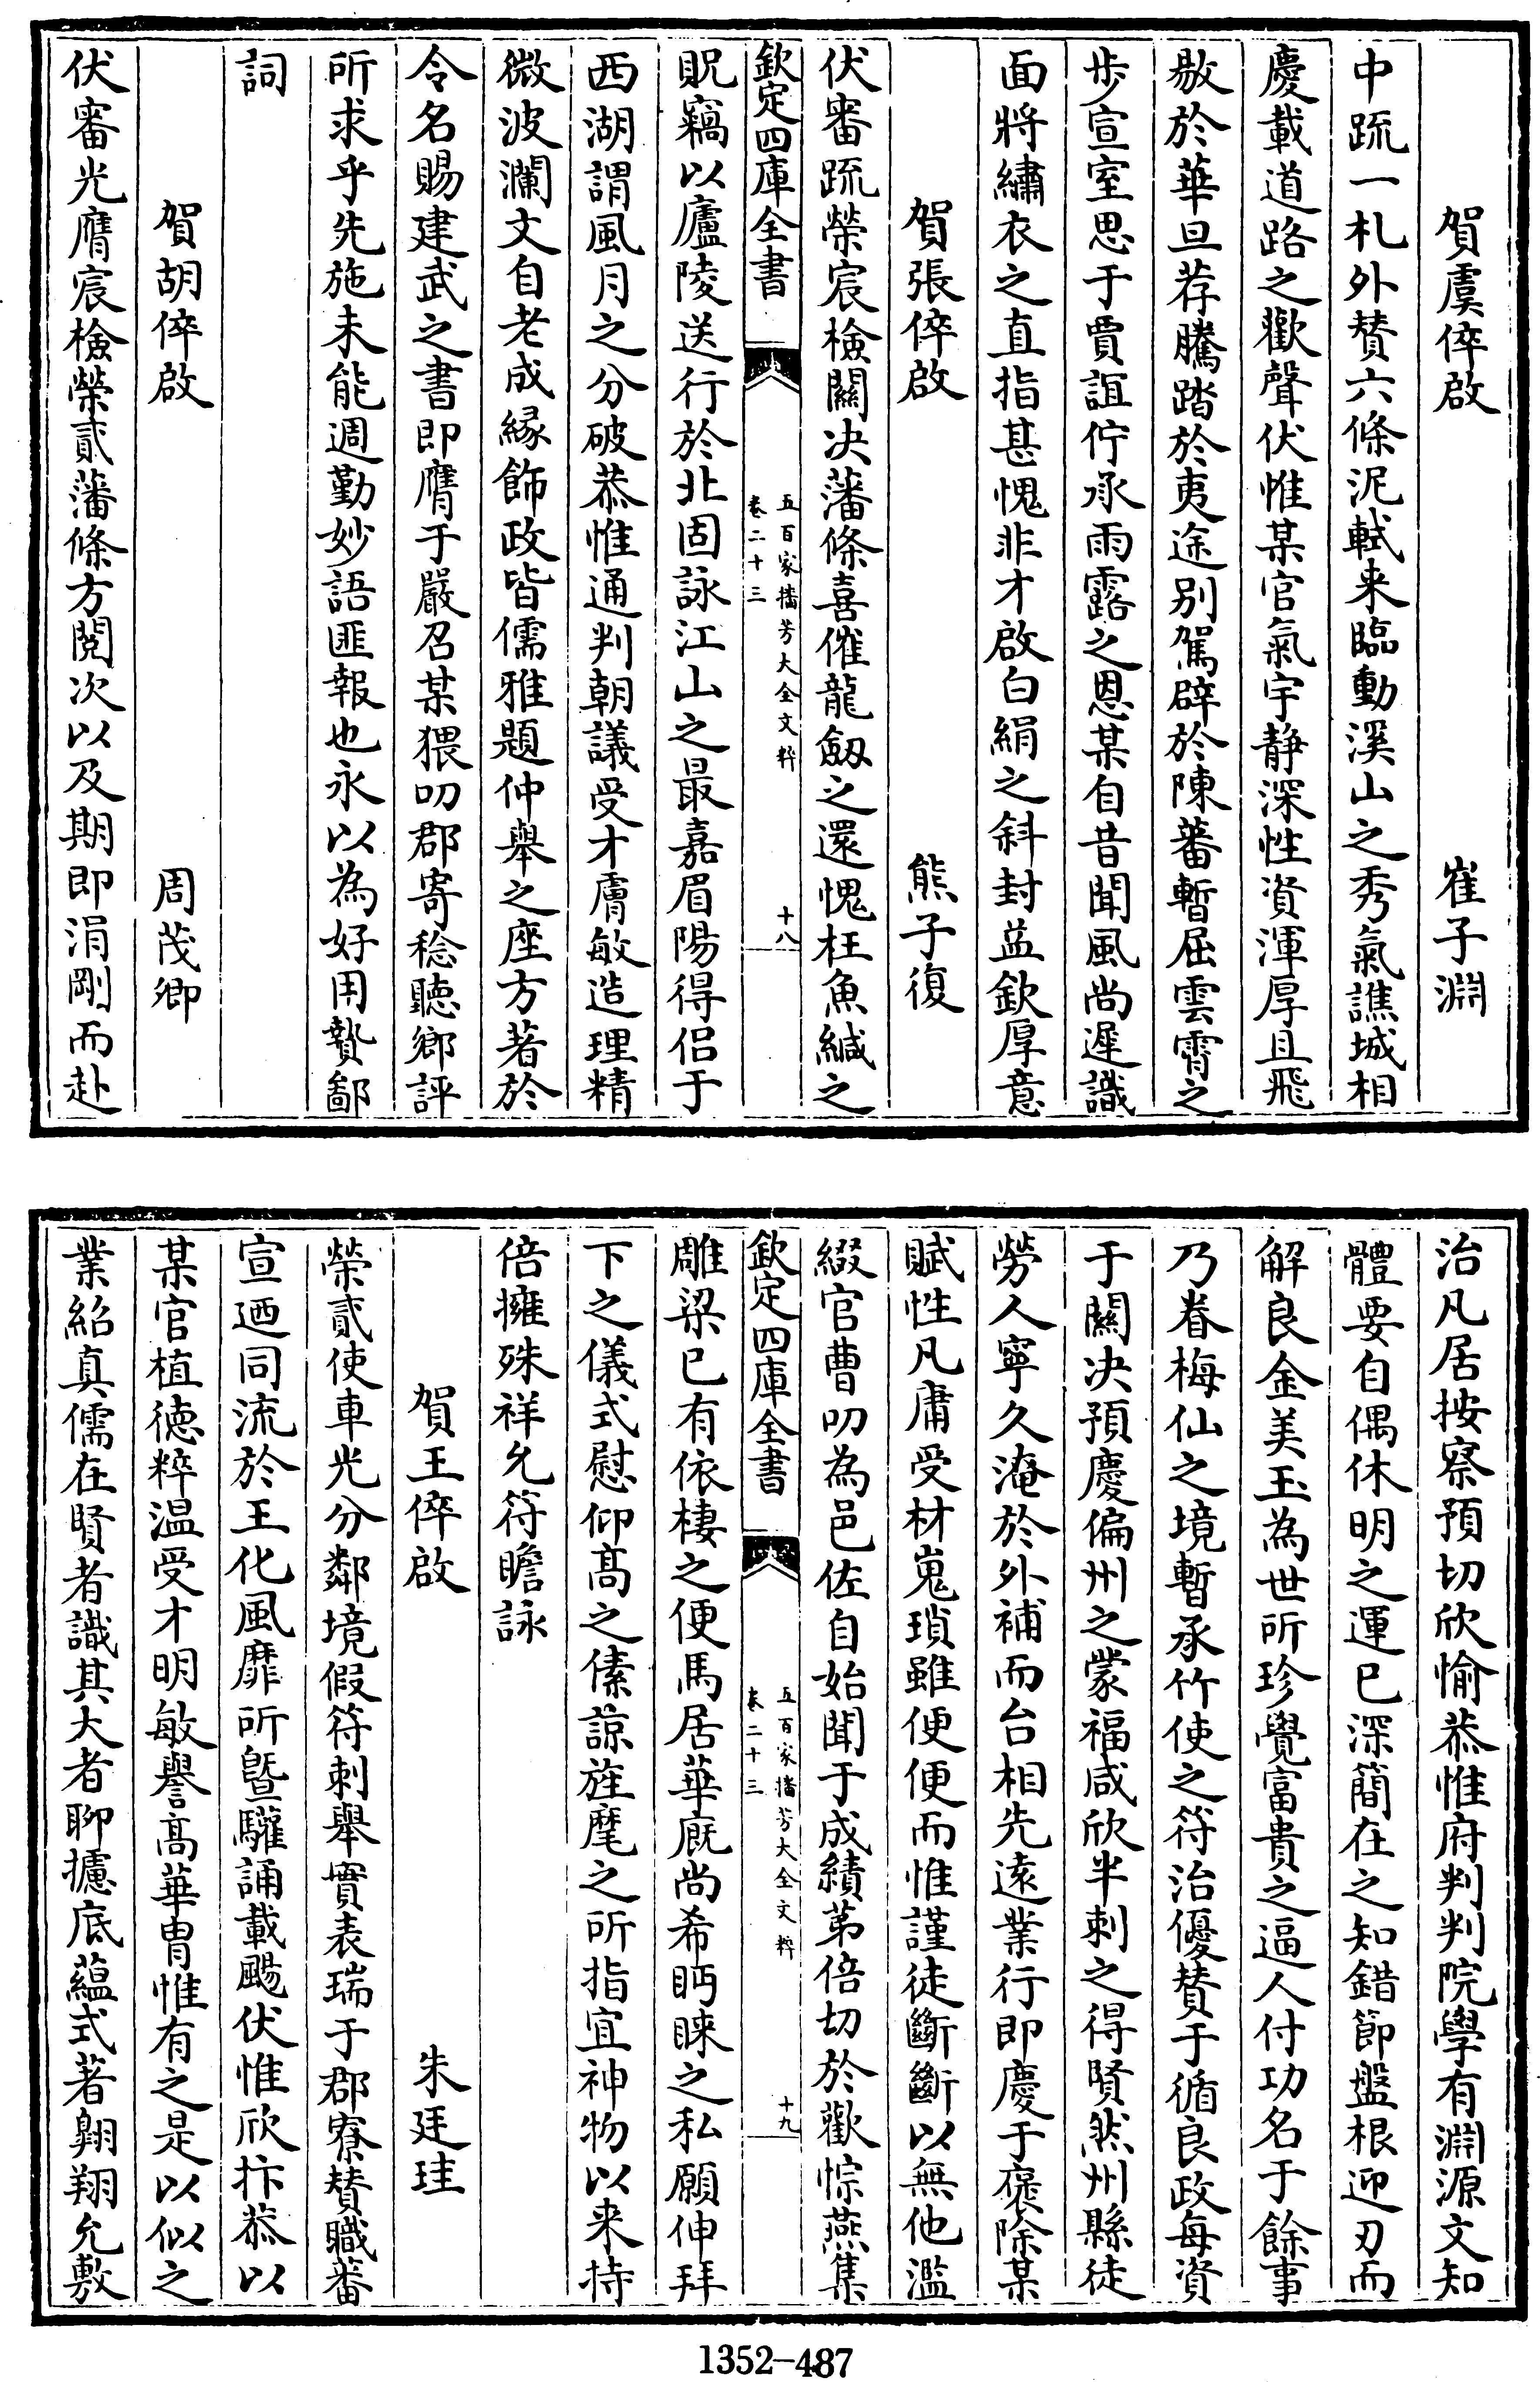 賀虞倅啟　崔子淵
中疏一札外賛六條泥軾来臨動溪山之秀氣譙城相
慶載道路之歡聲伏惟某官氣宇静深性資渾厚且飛
敭於華旦荐騰踏於夷途别駕辟於陳蕃暫屈雲霄之
歩宣室思于賈誼佇承雨露之恩某自昔聞風尚遲識
面將繡衣之直指甚愧非才啟白絹之斜封益欽厚意
賀張倅啟　熊子復
伏審疏榮宸檢關决藩條喜催龍劔之還愧枉魚緘之
欽定四庫全書　五百家播芳大全文粹　卷二十三　十八
貺竊以廬陵送行於北固詠江山之最嘉眉陽得侣于
西湖謂風月之分破恭惟通判朝議受才膚敏造理精
微波瀾文自老成緣飾政皆儒雅題仲舉之座方著於
令名賜建武之書即膺于嚴召某猥叨郡寄稔聽鄉評
所求乎先施未能週勤妙語匪報也永以為好用贄鄙
詞
賀胡倅啟　周茂卿
伏審光膺宸檢榮貳藩條方閲次以及期即涓剛而赴
治凡居按察預切欣愉恭惟府判判院學有淵源文知
體要自偶休明之運已深簡在之知錯節盤根迎刃而
解良金美玉為世所珍覺富貴之逼人付功名于餘事
乃眷梅仙之境暫承竹使之符治優賛于循良政每資
于關决預慶偏州之蒙福咸欣半刺之得賢然州縣徒
勞人寧久淹於外補而台相先遠業行即慶于褒除某
賦性凡庸受材嵬瑣雖便便而惟謹徒斷斷以無他濫
綴官曹叨為邑佐自始聞于成績第倍切於歡悰燕集
欽定四庫全書　五百家播芳大全文粹　卷二十三　十九
雕梁已有依棲之便馬居華廐尚希眄睞之私願伸拜
下之儀式慰仰髙之傃諒旌麾之所指宜神物以来持
倍擁殊祥允符瞻詠
賀王倅啟　朱廷珪
榮貳使車光分鄰境假符刺舉實表瑞于郡寮賛職蕃
宣廼同流於王化風靡所曁驩誦載颺伏惟欣抃恭以
某官植徳粹温受才明敏譽髙華胄惟有之是以似之
業紹真儒在賢者識其大者聊攄底藴式著翺翔允敷
1352-487